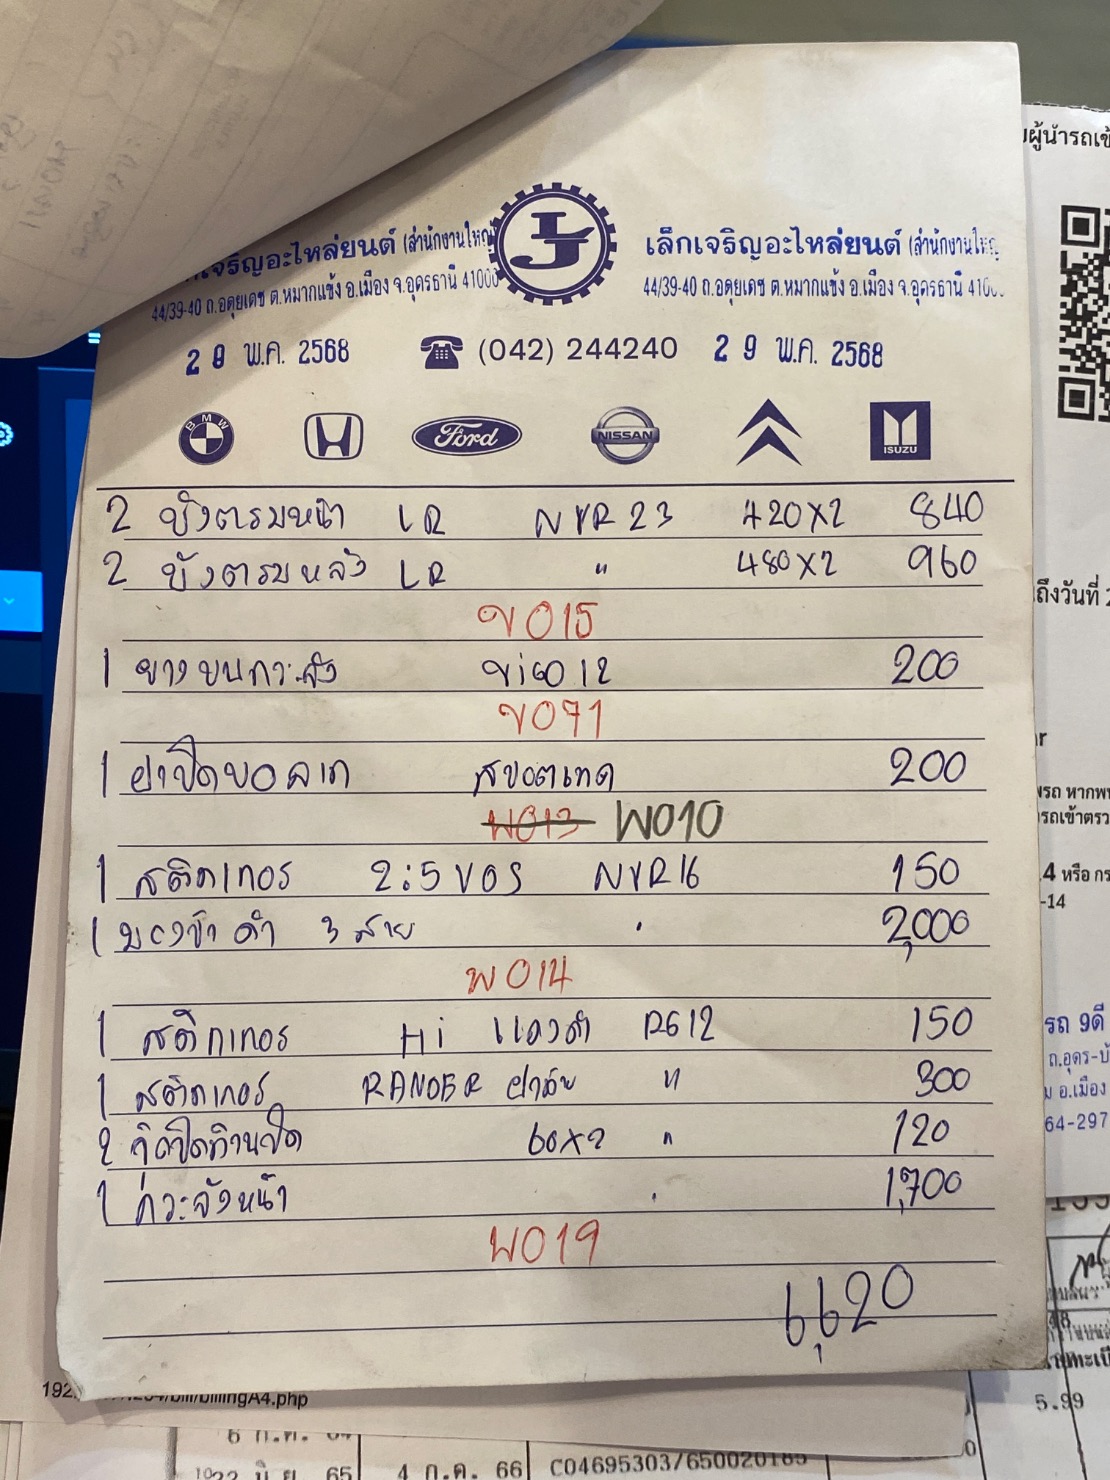 เจริญอะไหล่ยนต์ (สำนักงานใหญ่
เล็กเจริญอะไหล่ยนต์ (สำนักงานใหญ่
44/39-40 ถ.อดุยเดช ต.หมากแข้ง อ.เมือง จ.อุดรธานี 41000
44/39-40 ถ.อดุยเดช ต.หมากแข้ง อ.เมือง จ.อุดรธานี 41000
LJ
29 พ.ค. 2568 (042) 244240 29 พ.ค. 2568
BMW H Ford NISSAN ISUZU
2 บังตรมหน้า LR NYR23 420x2 840
2 บังตรมหลัง LR " 480x2 960
V015
1 ยางขนกระจัง vigo 12 200
V071
1 ฝาปิด สปอตเทค 200
W013 W010
1 สติกเกอร์ 2:5 VGS NYR16 150
1 ดำ 3 สาย " 2,000
W014
1 สติกเกอร์ Hi แดงดำ RG12 150
1 สติกเกอร์ RANGER " 300
2 60x2 " 120
1 กระจังหน้า " 1,700
W019
6,620
ผู้นำรถเข้
ถึงวันที่ 2
รถ หากพ
รถเข้าตรว
.4 หรือ กร
-14
รถ 9ดี
ถ.อุดร-บ้
อ.เมือง
64-297
5.99
billingA4.php
22 มิ.ย. 65 4 ก.ค. 66 C04695303/650020185